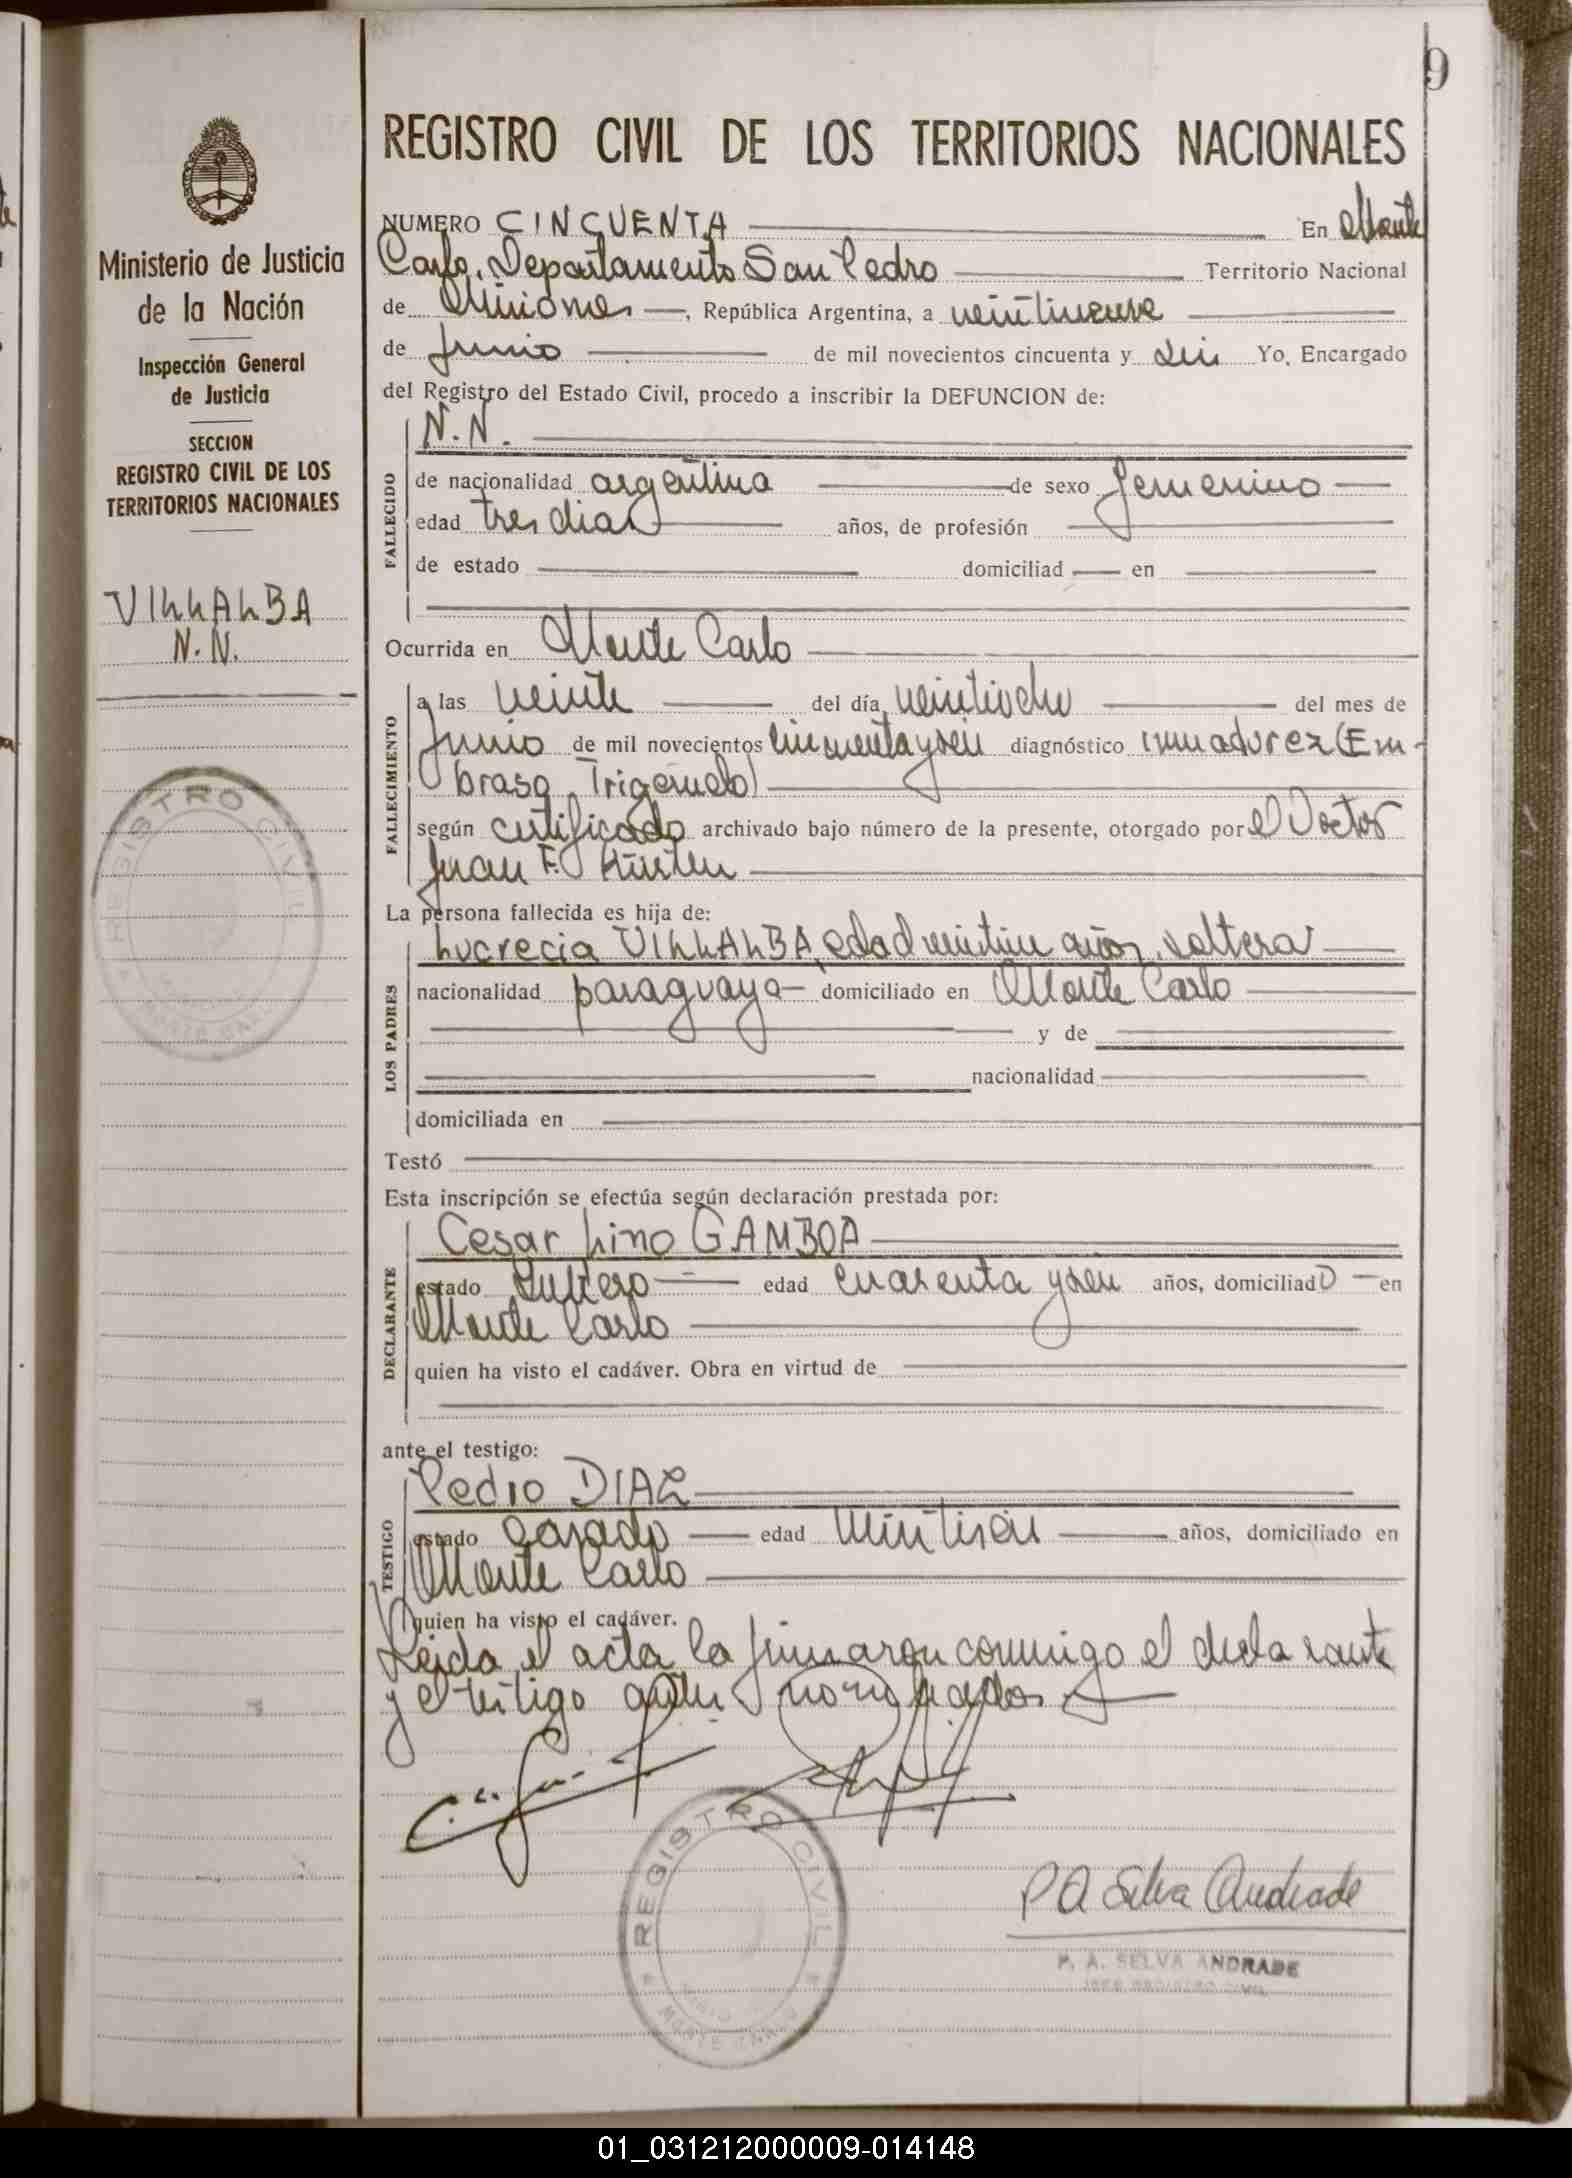 9
Ministerio de Justicia
de la Nación
Inspección General
de Justicia
SECCION
REGISTRO CIVIL DE LOS
TERRITORIOS NACIONALES
VILLALBA
N.N.
REGISTRO CIVIL
MONTE CARLO
REGISTRO CIVIL DE LOS TERRITORIOS NACIONALES
NUMERO CINCUENTA En Monte
Carlo, Departamento San Pedro Territorio Nacional
de Misiones, República Argentina, a veintinueve
de Junio de mil novecientos cincuenta y seis Yo, Encargado
del Registro del Estado Civil, procedo a inscribir la DEFUNCION de:
FALLECIDO
N.N.
de nacionalidad argentina de sexo femenino
edad tres dias años, de profesión
de estado domiciliad en
Ocurrida en Monte Carlo
FALLECIMIENTO
a las veinte del día veintiocho del mes de
Junio de mil novecientos cincuenta y seis diagnóstico inmadurez (Em-
braso Trigemelo)
según certificado archivado bajo número de la presente, otorgado por el Doctor
Juan F. Kürten
La persona fallecida es hija de:
LOS PADRES
Lucrecia VILLALBA, edad años, soltera
nacionalidad paraguaya domiciliado en Monte Carlo
y de
nacionalidad
domiciliada en
Testó
Esta inscripción se efectúa según declaración prestada por:
DECLARANTE
Cesar Lino GAMBOA
estado Soltero edad cuarenta y seis años, domiciliado en
Monte Carlo
quien ha visto el cadáver. Obra en virtud de
ante el testigo:
TESTIGO
Pedro DIAZ
estado casado edad veintiseis años, domiciliado en
Monte Carlo
quien ha visto el cadáver.
Leida el acta la firmaron conmigo el declarante
y el testigo antes nombrados
REGISTRO CIVIL
MONTE CARLO
P A Selva Andrade
P. A. SELVA ANDRADE
JEFE REGISTRO CIVIL
01_031212000009-014148